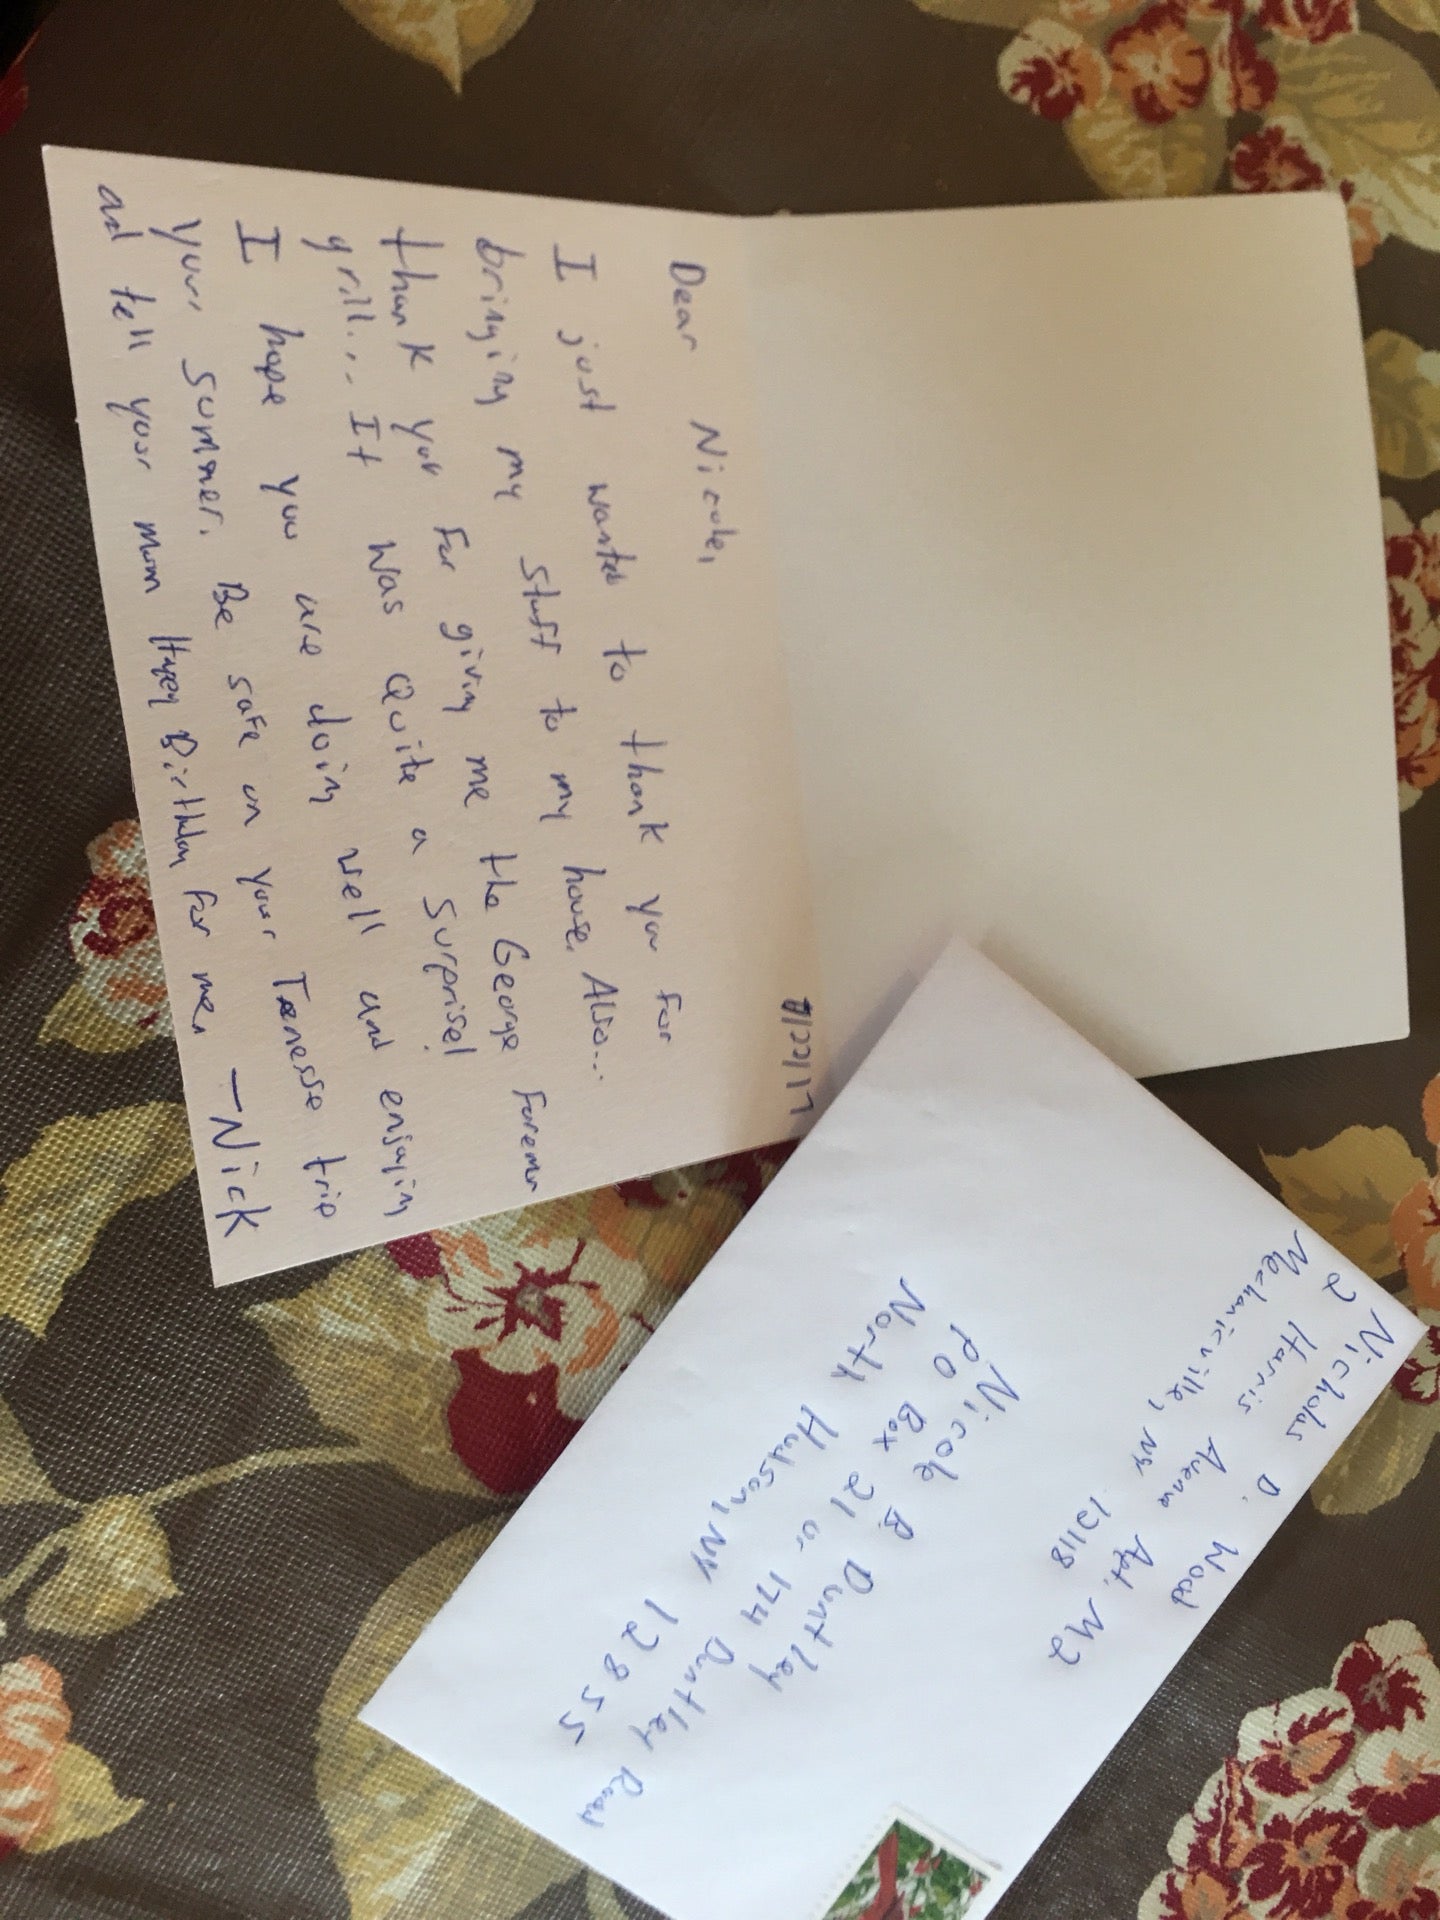 Dear Nicole,
I just wanted to thank you for
bringing my stuff to my house. Also...
thank you for giving me the George Foreman
grill... It was Quite a surprise!
I hope you are doing well and enjoying
your summer. Be safe on your Tenesse trip
and tell your mom Happy Birthday for me. -Nick
Nicholas D. Wood
2 Harris Avenue Apt. M2
Mechanicville, NY 12118
Nicole B. Duntley
PO Box 21 or 174 Duntley Road
North Hudson, NY 12855